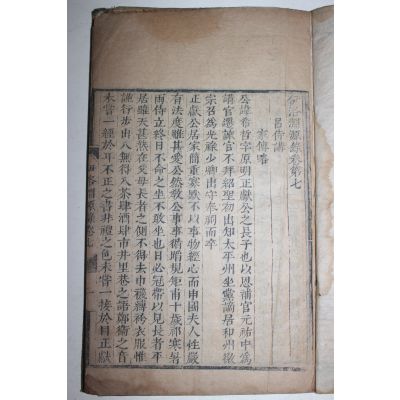 伊洛淵源錄卷第七
呂侍講
家傳略
公諱希哲字原明正獻公之長子也以恩補官元祐中為
講官遷諫官不拜紹聖初出知太平州坐黨謫居和州徽
宗召爲光祿少卿出守奉祠而卒
正獻公居家簡重寡默不以事物經心而申國夫人性嚴
有法度雖甚愛公然教公事事循蹈規矩甫十歲祁寒暑
雨侍立終日不命之坐不敢坐也日必冠帶以見長者平
居雖天甚熱在父母長者之側不得去巾襪縛袴衣服惟
謹行步出入無得入茶肆酒肆市井里巷之語鄭衛之音
未嘗一經於耳不正之書非禮之色未嘗一接於目正獻
伊洛淵源錄卷七